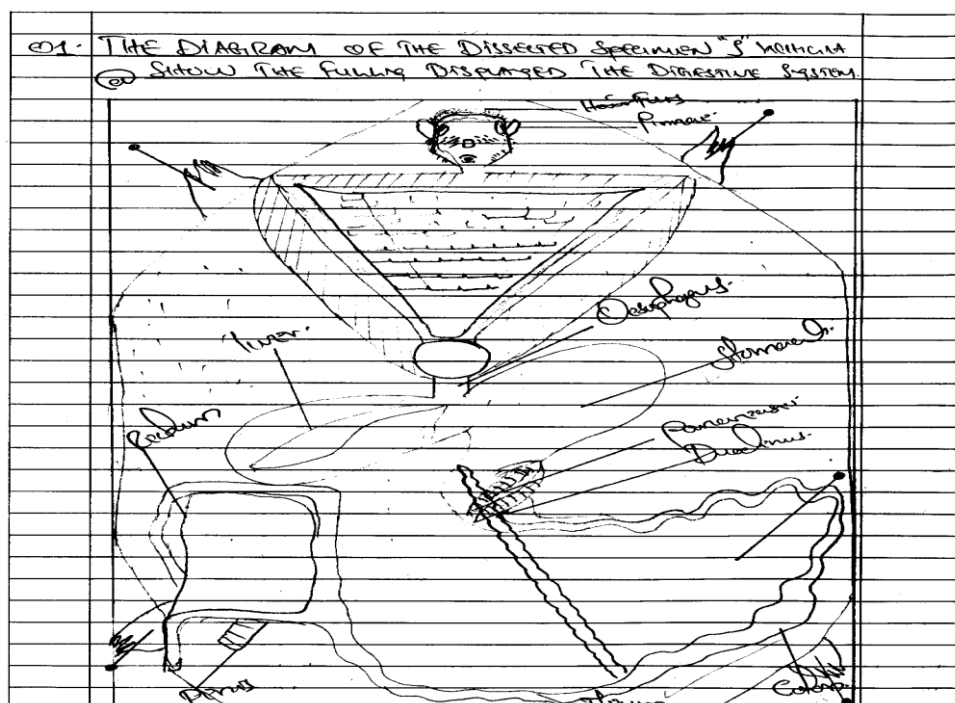 01. THE DIAGRAM OF THE DISSECTED SPECIMEN "S" WHICH
(a) SHOW THE FULLY DISPLAYED THE DIGESTIVE SYSTEM.
Pinnae.
Oesophagus.
liver.
Stomach.
Rectum
Duodenus.
Anus
Colon